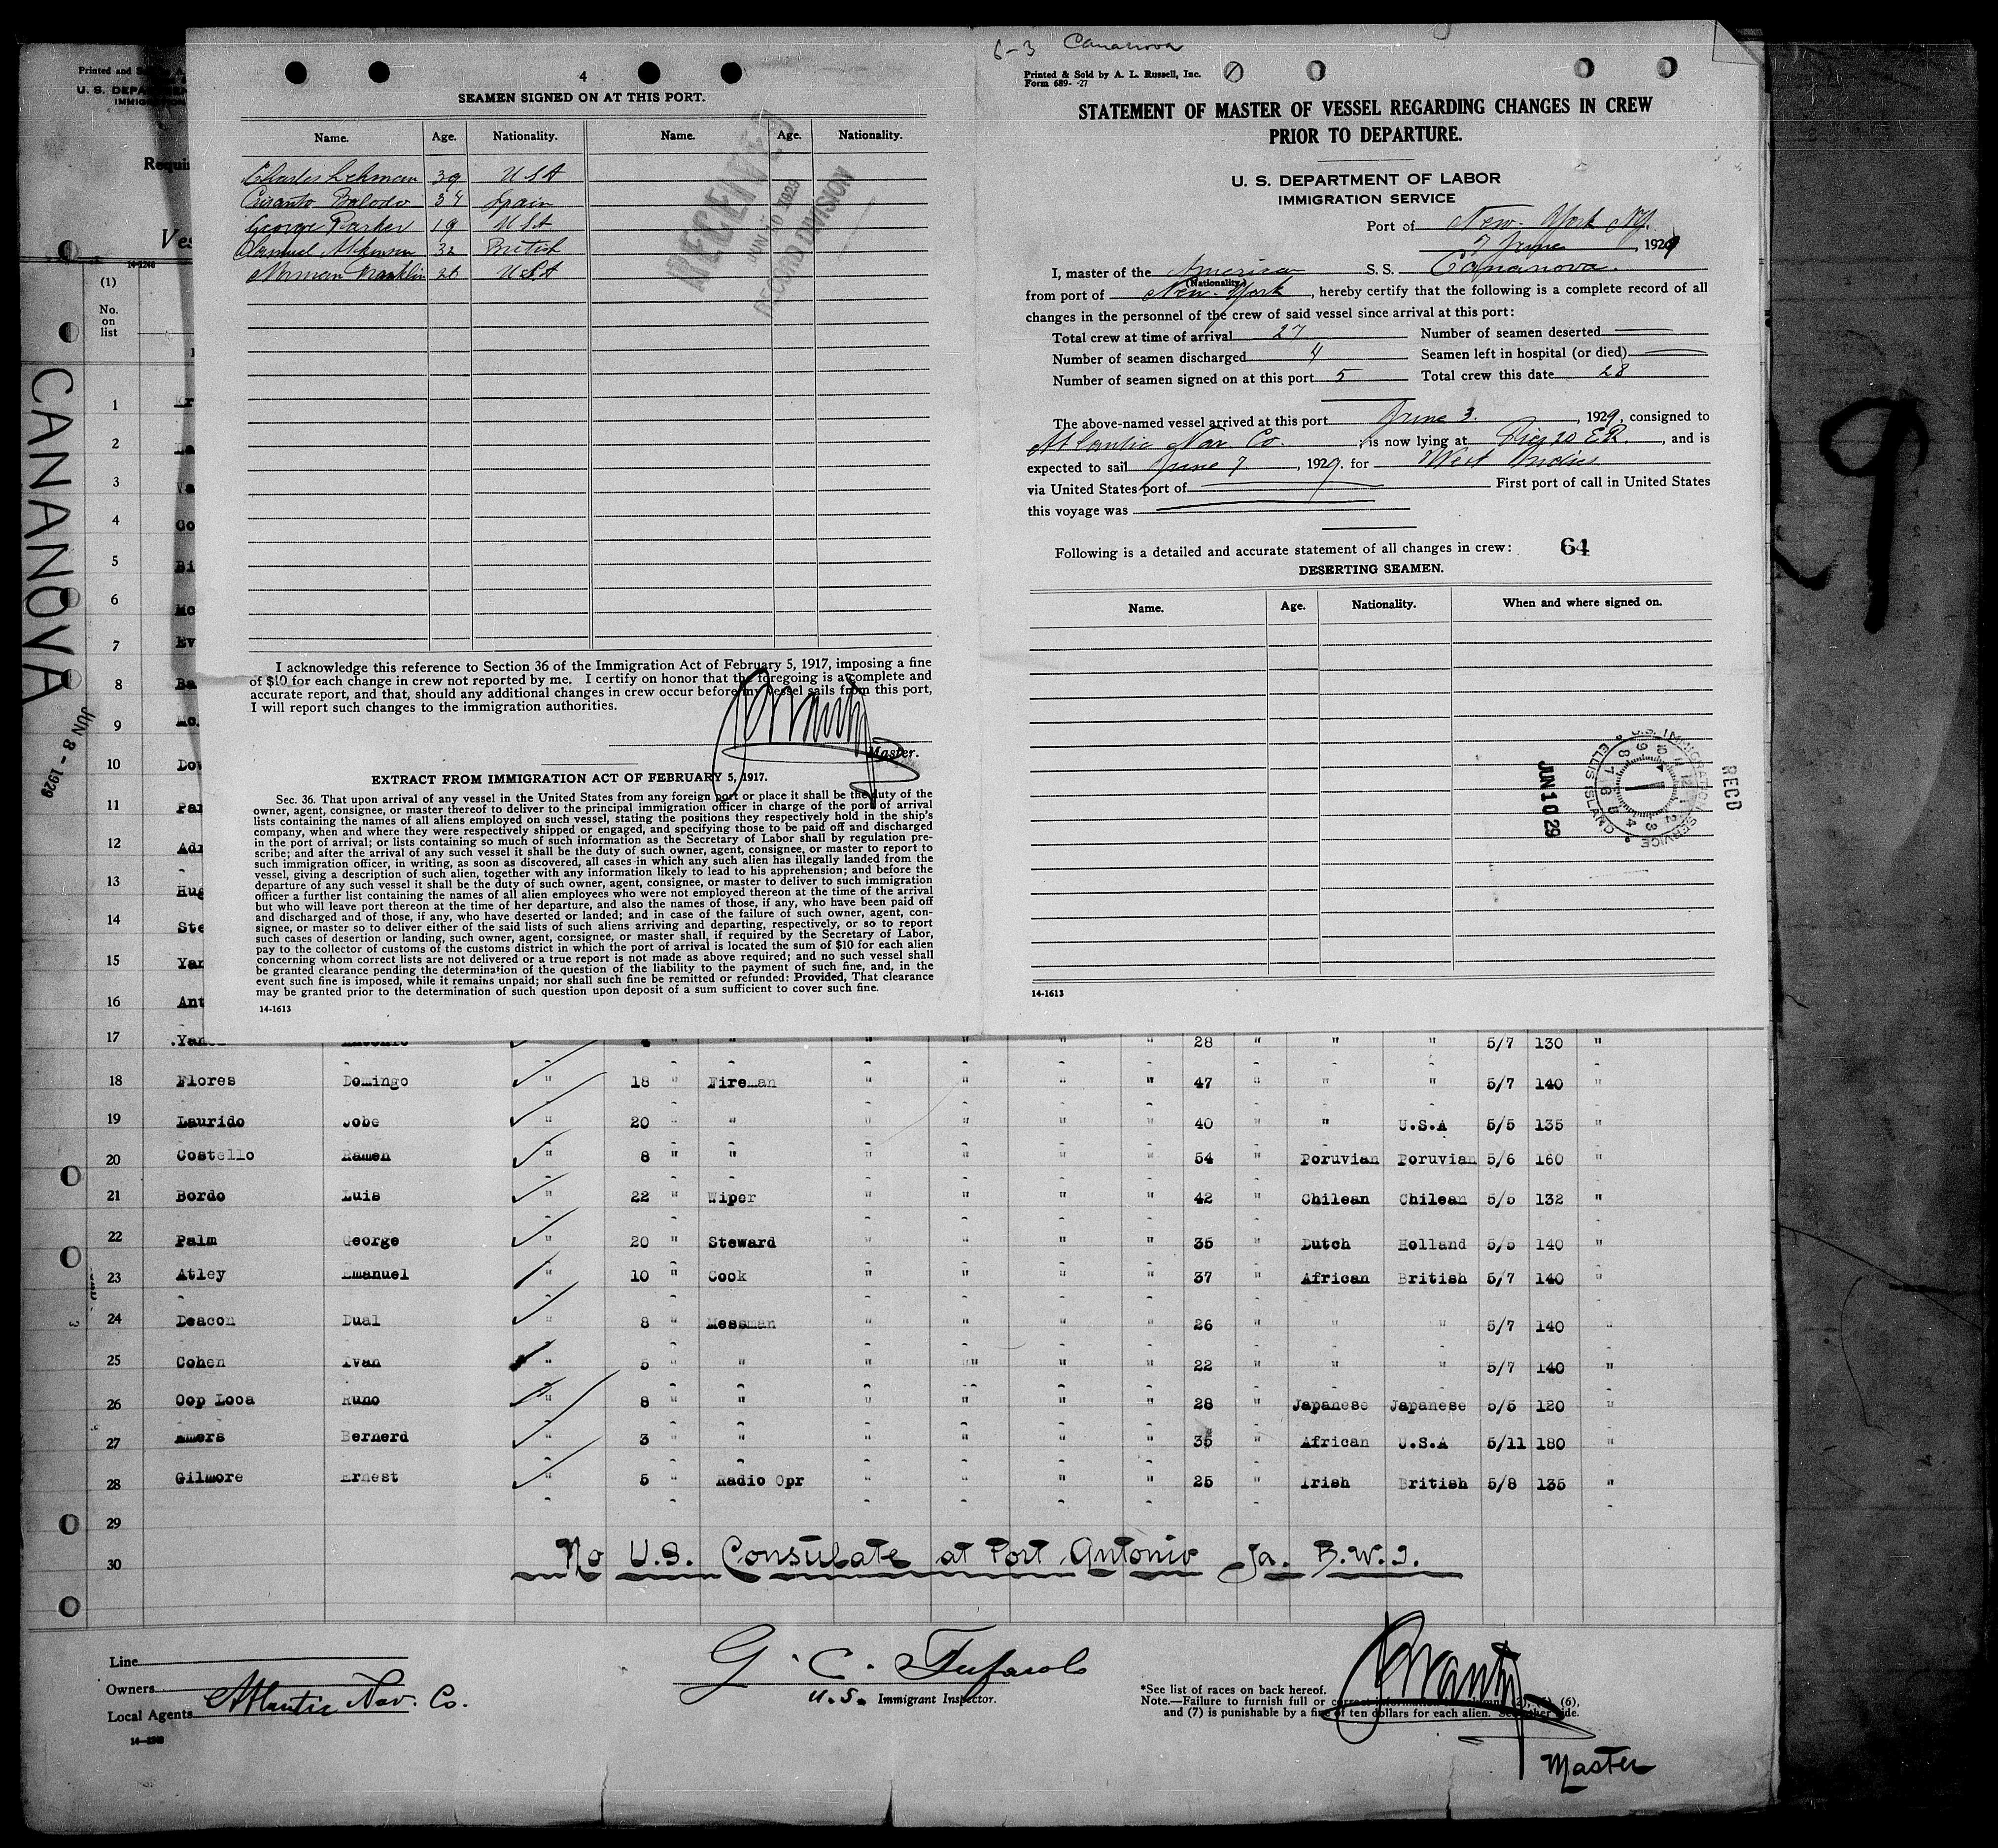 4
SEAMEN SIGNED ON AT THIS PORT.
Name. Age. Nationality. Name. Age. Nationality.
Charles Lehman 39 USA
34 Spain
George Parker 19 USA
Samuel Atkinson 32 British
Norman Franklin 26 USA
RECEIVED
JUN 10 1929
RECORD DIVISION
I acknowledge this reference to Section 36 of the Immigration Act of February 5, 1917, imposing a fine
of $10 for each change in crew not reported by me. I certify on honor that the foregoing is a complete and
accurate report, and that, should any additional changes in crew occur before my vessel sails from this port,
I will report such changes to the immigration authorities.
Master.
EXTRACT FROM IMMIGRATION ACT OF FEBRUARY 5, 1917.
Sec. 36. That upon arrival of any vessel in the United States from any foreign port or place it shall be the duty of the
owner, agent, consignee, or master thereof to deliver to the principal immigration officer in charge of the port of arrival
lists containing the names of all aliens employed on such vessel, stating the positions they respectively hold in the ship's
company, when and where they were respectively shipped or engaged, and specifying those to be paid off and discharged
in the port of arrival; or lists containing so much of such information as the Secretary of Labor shall by regulation pre-
scribe; and after the arrival of any such vessel it shall be the duty of such owner, agent, consignee, or master to report to
such immigration officer, in writing, as soon as discovered, all cases in which any such alien has illegally landed from the
vessel, giving a description of such alien, together with any information likely to lead to his apprehension; and before the
departure of any such vessel it shall be the duty of such owner, agent, consignee, or master to deliver to such immigration
officer a further list containing the names of all alien employees who were not employed thereon at the time of the arrival
but who will leave port thereon at the time of her departure, and also the names of those, if any, who have been paid off
and discharged and of those, if any, who have deserted or landed; and in case of the failure of such owner, agent, con-
signee, or master so to deliver either of the said lists of such aliens arriving and departing, respectively, or so to report
such cases of desertion or landing, such owner, agent, consignee, or master shall, if required by the Secretary of Labor,
pay to the collector of customs of the customs district in which the port of arrival is located the sum of $10 for each alien
concerning whom correct lists are not delivered or a true report is not made as above required; and no such vessel shall
be granted clearance pending the determination of the question of the liability to the payment of such fine, and, in the
event such fine is imposed, while it remains unpaid; nor shall such fine be remitted or refunded: Provided, That clearance
may be granted prior to the determination of such question upon deposit of a sum sufficient to cover such fine.
14-1613
6-3 Cananova
Printed & Sold by A. L. Russell, Inc.
Form 689- -27
STATEMENT OF MASTER OF VESSEL REGARDING CHANGES IN CREW
PRIOR TO DEPARTURE.
U. S. DEPARTMENT OF LABOR
IMMIGRATION SERVICE
Port of New-York NY.
7 June, 1929
I, master of the American S. S. Cananova.
(Nationality.)
from port of New-York, hereby certify that the following is a complete record of all
changes in the personnel of the crew of said vessel since arrival at this port:
Total crew at time of arrival 27 Number of seamen deserted
Number of seamen discharged 4 Seamen left in hospital (or died)
Number of seamen signed on at this port 5 Total crew this date 28
The above-named vessel arrived at this port June 3., 1929, consigned to
Atlantic Nav Co. is now lying at Pier 20 ER, and is
expected to sail June 7, 1929. for West Indies
via United States port of First port of call in United States
this voyage was
Following is a detailed and accurate statement of all changes in crew: 64
DESERTING SEAMEN.
Name. Age. Nationality. When and where signed on.
U.S. IMMIGRATION SERVICE ELLIS ISLAND
RECD
JUN 10 29
14-1613
Printed and
U. S. DEPA
IMMIG
Requi
Ves
14-1240
(1)
No.
on
list
CANANOVA
JUN 8 - 1929
9
1
2 La
3 Va
4 Go
5 Bi
6 Mc
7 Ev
8 Ba
9 Mc.
10 Dow
11 Par
12 Adr
13 Hug
14 Ste
15 Yar
16 Ant
17 Yan 28 " " " 5/7 130 "
18 Flores Domingo " 18 " Fireman " " " " 47 " " " 5/7 140 "
19 Laurido Jobe " 20 " " " " " " 40 " " U.S.A 5/5 135 "
20 Costello Ramen " 8 " " " " " " 54 " Poruvian Poruvian 5/6 160 "
21 Bordo Luis " 22 " Wiper " " " " 42 " Chilean Chilean 5/5 132 "
22 Palm George " 20 " Steward " " " " 35 " Dutch Holland 5/5 140 "
23 Atley Emanuel " 10 " Cook " " " " 37 " African British 5/7 140 "
24 Deacon Dual " 8 " Messman " " " " 26 " " " 5/7 140 "
25 Cohen Ivan " 5 " " " "" " " 22 " " " 5/7 140 "
26 Oop Looa Runo " 8 " " " " " " 28 " Japanese Japanese 5/5 120 "
27 Amers Bernerd " 3 " " " " " " 35 " African U.S.A 5/11 180 "
28 Gilmore Ernest " 5 " Radio Opr " " " " 25 " Irish British 5/8 135 "
29
30 No U.S. Consulate at Port Antonio Ja. B.W.I.
Line
Owners
Local Agents Atlantic Nav. Co.
14-1240
G. C. Tufarolo
U.S. Immigrant Inspector.
*See list of races on back hereof.
Note.—Failure to furnish full or correct information in columns (2), (5), (6),
and (7) is punishable by a fine of ten dollars for each alien. See other side.
Master